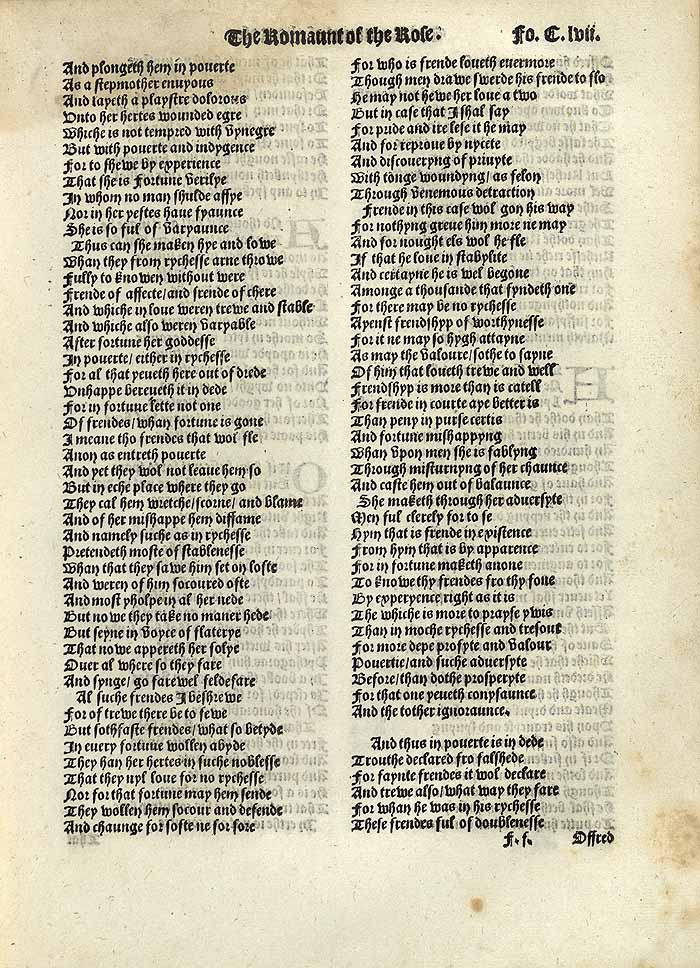 The Romaunt of the Rose. Fo. C. lvii.
And plongeth hem in pouerte
As a stepmother enuyous
And layeth a playstre dolorous
Vnto her hertes wounded egre
Whiche is not tempred with vynegre
But with pouerte and indygence
For to shewe by experience
That she is Fortune verilye
In whom no man shulde affye
Nor in her yestes haue fyaunce
She is so ful of varyaunce
Thus can she maken hye and lowe
Whan they from rychesse arne throwe
Fully to knowen without were
Frende of affecte/and frende of chere
And whiche in loue weren trewe and stable
And whiche also weren varyable
After fortune her goddesse
In pouerte/ either in rychesse
For al that yeueth here out of drede
Vnhappe bereueth it in dede
For in fortune lette not one
Of frendes/ whan fortune is gone
I meane tho frendes that wol fle
Anon as entreth pouerte
And yet they wol not leaue hem so
But in eche place where they go
They cal hem wretche/scorne/ and blame
And of her mishappe hem diffame
And namely suche as in rychesse
Pretendeth moste of stablenesse
Whan that they sawe him set on lofte
And weren of him socoured ofte
And most yholpe in al her nede
But nowe they take no maner hede
But seyne in voyce of flaterye
That nowe appereth her folye
Ouer al where so they fare
And synge/ go farewel feldefare
Al suche frendes I beshrewe
For of trewe there be to fewe
But sothfaste frendes/ what so betyde
In euery fortune wollen abyde
They han her hertes in suche noblesse
That they nyl loue for no rychesse
Nor for that fortune may hem sende
They wollen hem socour and defende
And chaunge for softe ne for sore
For who is frende loueth euermore
Though men drawe swerde his frende to slo
He may not hewe her loue a two
But in case that I shal say
For pride and ire lese it he may
And for reproue by nycete
And discoueryng of priuyte
With tonge woundyng/ as felon
Through venemous detraction
Frende in this case wol gon his way
For nothyng greue him more ne may
And for nought els wol he fle
If that he loue in stabylite
And certayne he is wel begone
Amonge a thousande that fyndeth one
For there may be no rychesse
Ayenst frendshyp of worthynesse
For it ne may so hygh attayne
As may the valoure/ sothe to sayne
Of him that loueth trewe and well
Frendshyp is more than is catell
For frende in courte aye better is
Than peny in purse certis
And fortune mishappyng
Whan vpon men she is fablyng
Through misturnyng of her chaunce
And caste hem out of balaunce
She maketh through her aduersyte
Men ful clerely for to se
Hym that is frende in existence
From hym that is by apparence
For in fortune maketh anone
To knowe thy frendes fro thy fone
By experyence right as it is
The whiche is more to prayse ywis
Than in moche rychesse and tresour
For more depe profyte and valour
Pouertie/and suche aduersyte
Before/ than dothe prosperyte
For that one yeueth conysaunce
And the tother ignoraunce.
And thus in pouerte is in dede
Trouthe declared fro falshede
For faynte frendes it wol declare
And trewe also/ what way they fare
For whan he was in his rychesse
These frendes ful of doublenesse
F. f. Offred